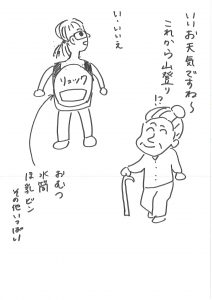 いいお天気ですね〜
これから山登り
!?
い・いいえ
リュック
おむつ
水筒
ほ乳ビン
その他いっぱい